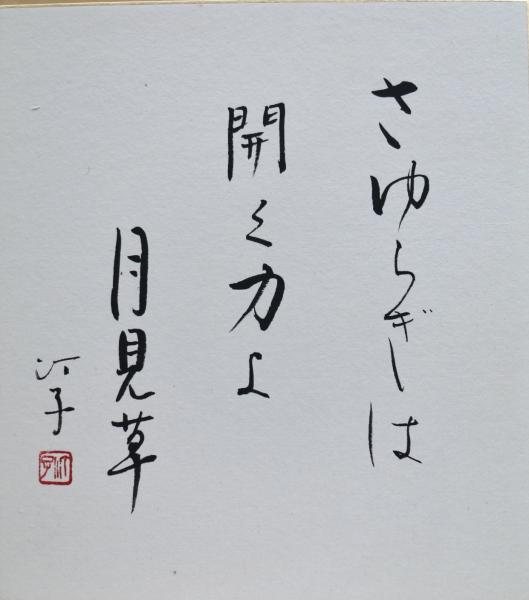 さゆらぎは
開く力よ
月見草
汀子
汀子